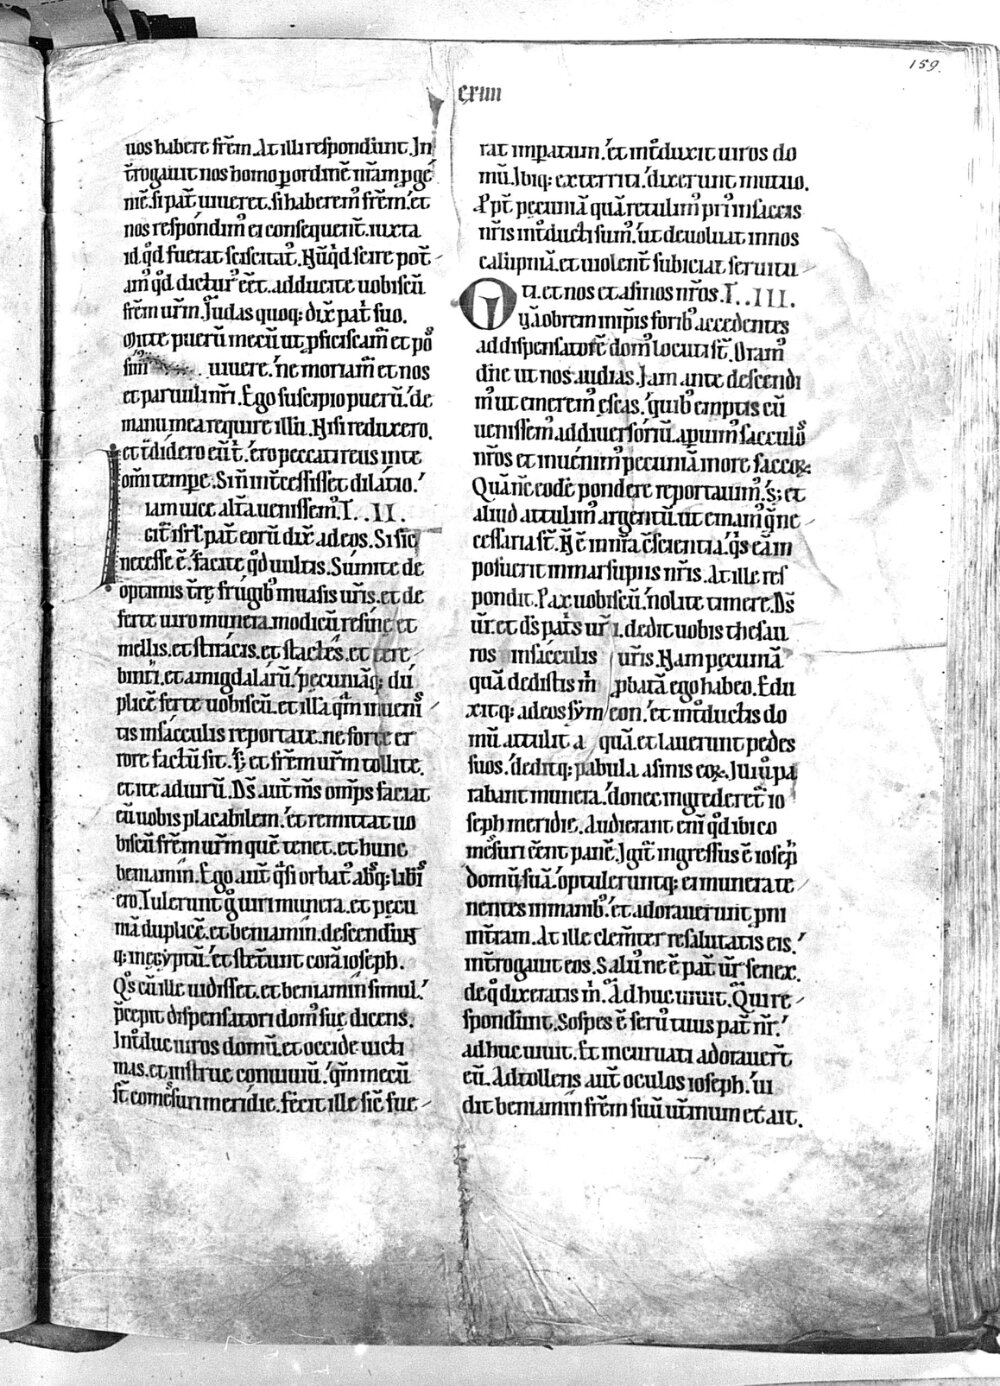 159
cxiiii
uos habere fr̄em. At illi respond̓unt. In
t̄rogauit nos homo p ordinē nr̄am p̱gē
niē. si pat̄ uiueret. si haberem᷒ fr̄em. et
nos respondim᷒ ei consequent̄. iuxta
id qd̓ fuerat sciscitat᷒. Nūq̓d scire pot̄
am᷒ qd̓ dictur᷒ eēt. adducite uobiscū
fr̄em ur̄m. Iudas quoq; dix̄ pat̓ suo.
Mitte puerū mecū ut p̱ficiscam᷒ et pos
sim᷒ uiuere. ne moriam᷒ et nos
et paruuli nr̄i. Ego suscipio puerū. de
manu mea require illū. Nisi reduxero.
et t̓dídero eū t̓. ero peccati reus in te
om̄i tempe. Si n̄ int̓cessisset dilatio.
iam uice alt̓a uenissem᷒. L. II.
Igit̄ isrl̓ pat̄ eorū dix̄ ad eos. Si sic
necesse ē. facite qd̓ uultis. Sumite de
optimis t̄rę frugib᷒ in uasis ur̄is. et de
ferte uiro munera. modicū resinę et
mellis. et storacis. et stactes. et tere
binti. et amigdalarū. pecuniāq; du
plicē ferte uobiscū. et illā quā inuenis
tis in sacculis reportate. ne forte er
rore factū sit. S; et fr̄em ur̄m tollite.
et ite ad uirū. Ds̄ aut̄ ms̄ omp̄s faciat
eū uobis placabilem. et remittat uo
biscū fr̄em ur̄m quē tenet. et hunc
beniamin. Ego aut̄ q̓si orbat᷒ absq; lib̓is
ero. Tulerunt g̊ uiri munera. et pecu
niā duplicē. et beniamin. descend̓unt
q; in egyptū. et stet̓unt corā ioseph.
Qos cū ille uidisset. et beniamin simul.
p̄cepit dispensatori dom᷒ suę dicens.
Int̓duc uiros domū. et occide uicti
mas. et instrue conuiuiū. qm̄ mecū
st̄ comesuri meridie. Fecit ille sic̄ fue
rat imp̱atum. et int̓duxit uiros do
mū. Ibiq; ext̓riti. dixerunt mutuo.
Ppt̄ pecuniā quā retulim᷒ pri᷒ in saccis
nr̄is int̓ducti sum᷒. ut deuoluat in nos
calūpniā. et uiolent̄ subiciat seruitu
ti. et nos et asinos nr̄os. L. III.
Quā obrem in ip̄is forib᷒ accedentes
ad dispensatorē dom᷒ locuti st̄. Oram᷒
dn̄e ut nos audias. Iam ante descendi
m᷒ ut emerem᷒ escas. quib᷒ emptis cū
uenissem᷒ ad diuersoriū. apuim᷒ sacculos
nr̄os et inuenim᷒ pecuniā in ore saccoꝝ.
Quā n̄c eodē pondere reportauim᷒. S; et
aliud attulim᷒ argentū. ut emam᷒ q̄ ne
cessaria st̄. N̄ ē in nr̄a c̄scientia. q̓s eam
posuerit in marsupiis nr̄is. At ille res
pondit. Pax uobiscū. nolite timere. Ds̄
ur̄. et ds̄ pat̓s ur̄i. dedit uobis thesau
ros in sacculis ur̄is. Nam pecuniā
quā dedistis m̓ p̱batā ego habeo. Edu
xitq; ad eos symeon. et int̓ductis do
mū. attulit aquā. et lauerunt pedes
suos. deditq; pabula asinis eoꝝ. Illi u̓ pa
rabant munera. donec ingrederet̄ io
seph meridie. Audierant eni᷒ qd̓ ibi co
mesuri eent panē. Igit̄ ingressus ē ioseph
domū suā. optuleruntq; ei munera te
nentes in manib᷒. et adorauerunt pni
in t̄ram. At ille clem̄ter resalutatis eis.
int̄rogauit eos. Saluus ne ē pat̄ ur̄ senex.
de q̊ dixeratis m̓. Ad huc uiuit. Qui re
spond̓unt. Sospes ē seru᷒ tuus pat̄ nr̄.
adhuc uiuit. Et incuruati adorauer̄t
eū. Adtollens aut̄ oculos ioseph. ui
dit beniamin fr̄em suū ut̓inum et ait.